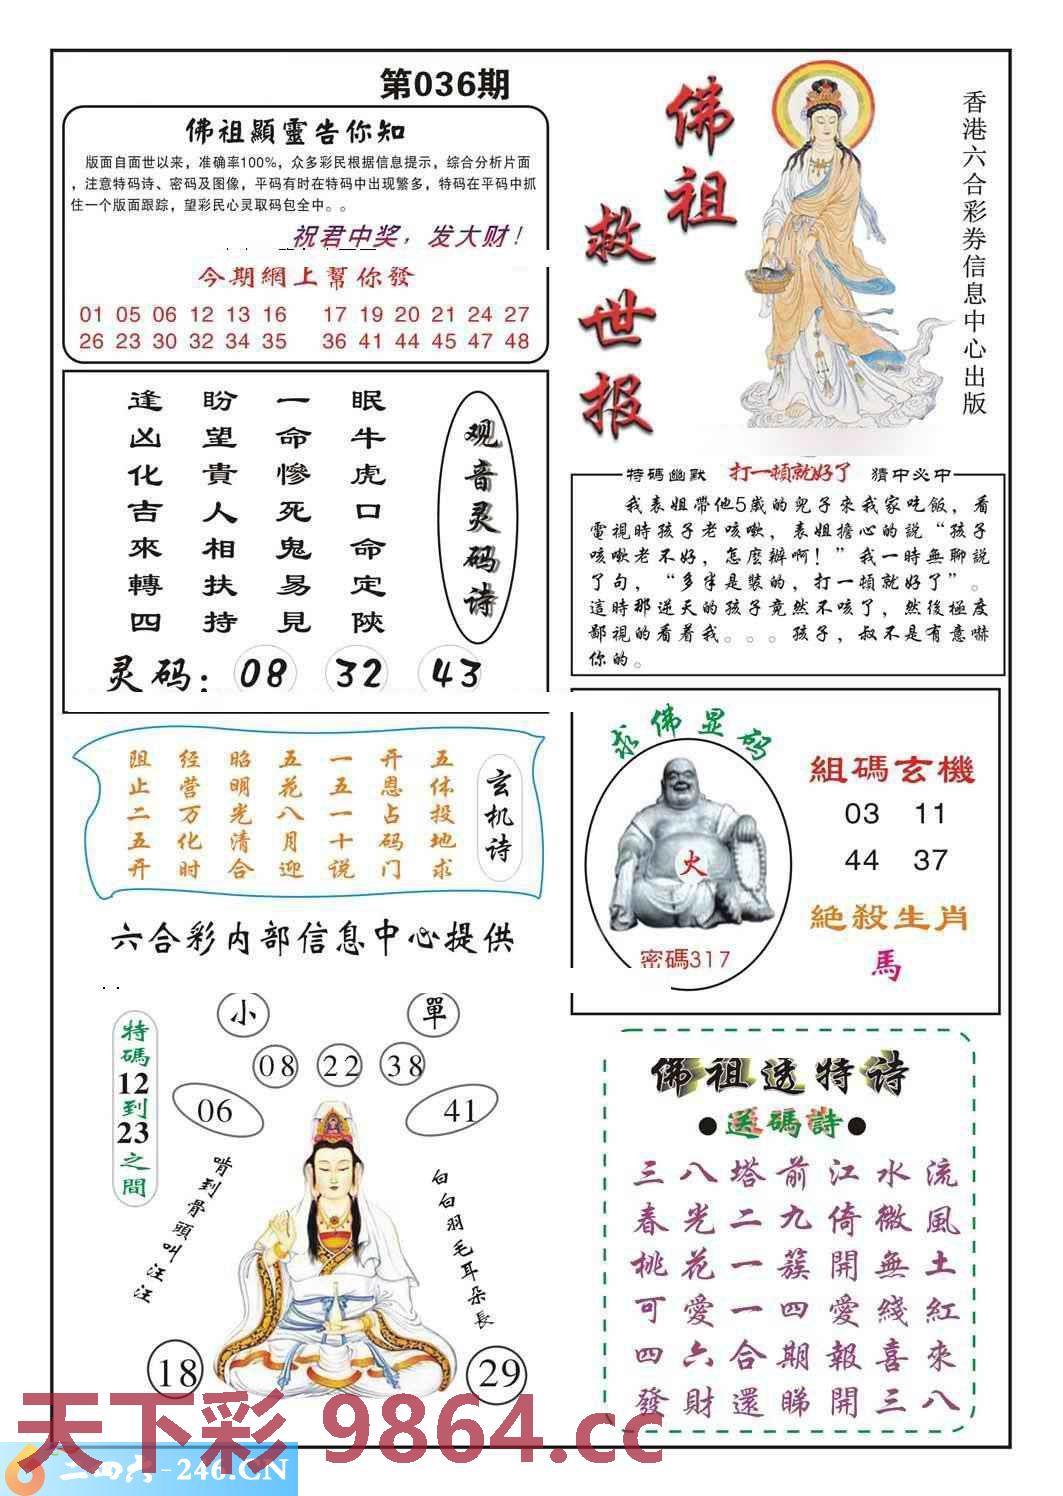 第036期
佛祖顯靈告你知
版面自面世以来，准确率100%，众多彩民根据信息提示，综合分析片面
，注意特码诗、密码及图像，平码有时在特码中出现繁多，特码在平码中抓
住一个版面跟踪，望彩民心灵取码包全中。。
祝君中奖，发大财！
今期網上幫你發
01 05 06 12 13 16 17 19 20 21 24 27
26 23 30 32 34 35 36 41 44 45 47 48
佛祖
救世报
香港六合彩券信息中心出版
观音灵码诗
眠牛虎口命定陝
一命慘死鬼易見
盼望貴人相扶持
逢凶化吉來轉四
灵码：08 32 43
特碼幽默 打一頓就好了 猜中必中
我表姐帶他5歲的兒子來我家吃飯，看
電視時孩子老咳嗽，表姐擔心的説“孩子
咳嗽老不好，怎麼辦啊！”我一時無聊説
了句，“多半是裝的，打一頓就好了”。
這時那逆天的孩子竟然不咳了，然後極度
鄙視的看着我。。。孩子，叔不是有意嚇
你的。
玄机诗
五体投地求
开恩占码门
一五一十说
五花八月迎
昭明光清合
经营万化时
阻止二五开
六合彩内部信息中心提供
求佛显码
火
密碼317
組碼玄機
03 11
44 37
絕殺生肖
馬
特碼12到23之間
小 單
08 22 38
06 41
啃到骨頭叫汪汪
白白羽毛耳朵長
18 29
佛祖透特诗
●送碼詩●
三八塔前江水流
春光二九倚微風
桃花一簇開無土
可愛一四愛綫紅
四六合期報喜來
發財還睇開三八
天下彩 9864.cc
二四六-246.CN